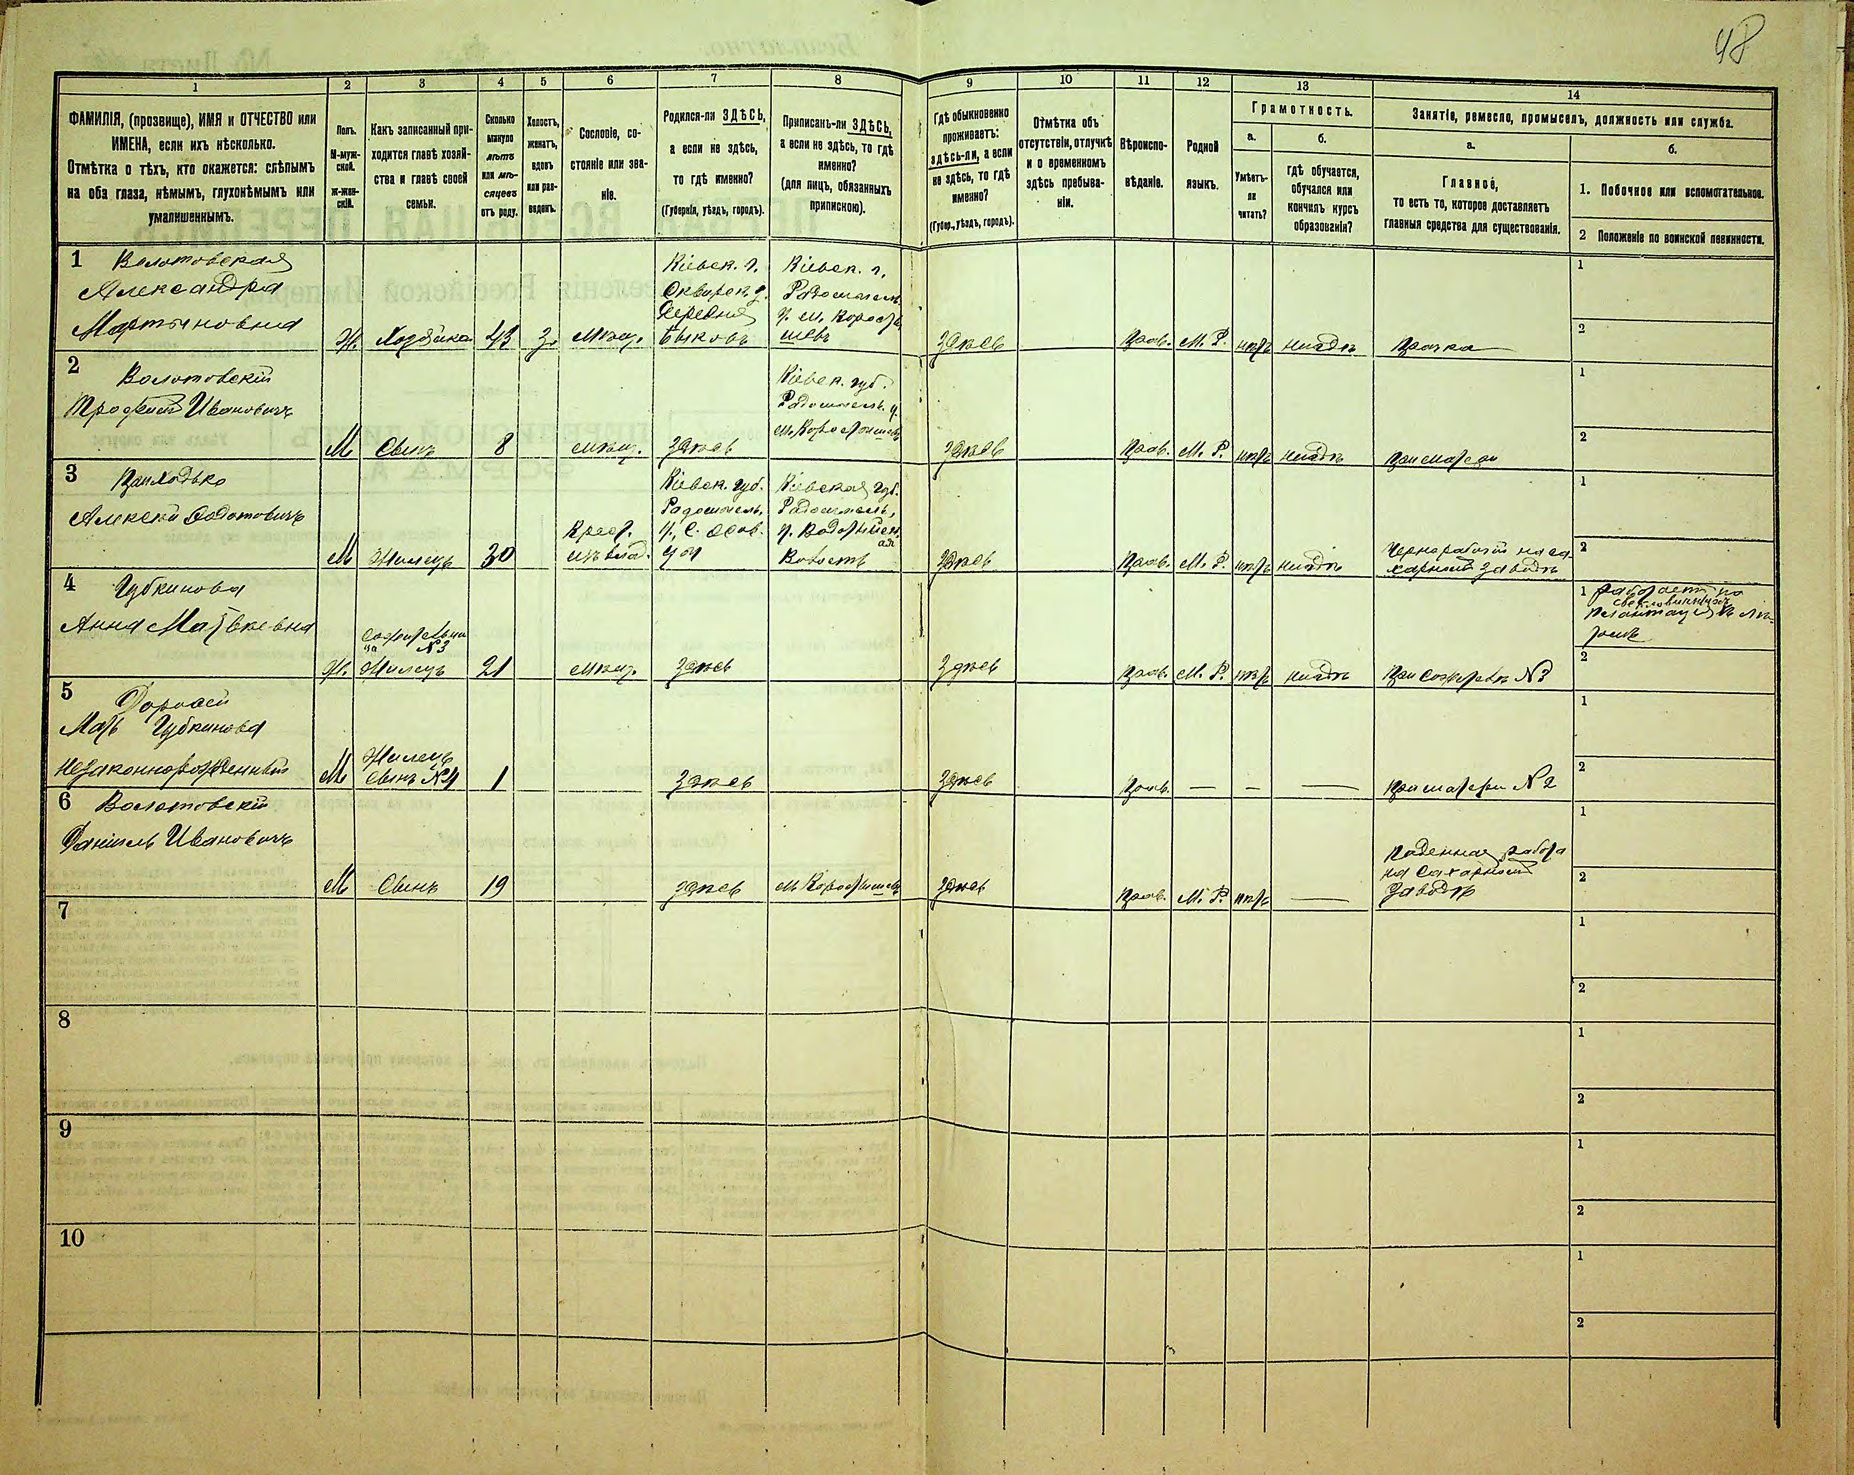 48
1
2
3
4
5
6
7
8
9
10
11
12
13
14
ФАМИЛІЯ, (прозвище), ИМЯ и ОТЧЕСТВО или
ИМЕНА, если ихъ нѣсколько.
Отмѣтка о тѣхъ, кто окажется: слѣпымъ
на оба глаза, нѣмымъ, глухонѣмымъ или
умалишеннымъ.
Полъ.
М-муж-
ской.
Ж-жен-
скій.
Какъ записанный при-
ходится главѣ хозяй-
ства и главѣ своей
семьи.
Сколько
минуло
лѣтъ
или мѣ-
сяцевъ
отъ роду.
Холостъ,
женатъ,
вдовъ
или раз-
веденъ.
Сословіе, со-
стояніе или зва-
ніе.
Родился-ли ЗДѢСЬ,
а если не здѣсь,
то гдѣ именно?
(Губернія, уѣздъ, городъ).
Приписанъ-ли ЗДѢСЬ,
а если не здѣсь, то гдѣ
именно?
(для лицъ, обязанныхъ
припискою).
Гдѣ обыкновенно
проживаетъ:
здѣсь-ли, а если
не здѣсь, то гдѣ
именно?
(Губер., уѣздъ, городъ).
Отмѣтка объ
отсутствіи, отлучкѣ
и о временномъ
здѣсь пребыва-
ніи.
Вѣроиспо-
вѣданіе.
Родной
языкъ.
Грамотность.
а.
Умѣетъ-
ли
читать?
б.
Гдѣ обучается,
обучался или
кончилъ курсъ
образованія?
Занятіе, ремесло, промыселъ, должность или служба.
а.
Главное,
то есть то, которое доставляетъ
главныя средства для существованія.
б.
1. Побочное или вспомогательное.
2 Положеніе по воинской повинности.
1 Волотовская
Александра
Мартыновна
Ж. Хозяйка 43 З. мѣщ.
Кіевск. г.
Сквирск. у.
деревня
Быковъ
Кіевск. г.
Радомысль.
у. м. Корост
шевъ
здѣсь Прав. М. Р. нѣтъ нигдѣ Прачка
1
2
2 Волотовскій
Трофимъ Ивановичъ
М Сынъ 8 мѣщ. здѣсь
Кіевск. губ.
Радомысль. у.
м. Коростышевъ
здѣсь Прав. М. Р. нѣтъ нигдѣ при матери
1
2
3 Приходько
Алексѣй Федотовичъ
М Жилецъ 30
Крест.
изъ влад.
Кіевск. губ.
Радомысль,
у., с. Осов-
Кіевская губ.
Радомысль,
Волость
здѣсь Прав. М. Р. нѣтъ нигдѣ
Чернорабочій на са-
харномъ заводѣ
1
2
4 Губкинова
Анна Матвѣевна
Ж.
сожительни
ца №3
Жилецъ 21 мѣщ. здѣсь
здѣсь Прав. М. Р. нѣтъ нигдѣ при сожителѣ №3
1 работаетъ на
свекловичныхъ
плантаціяхъ лѣ-
томъ
2
5 Дорофей
Мать Губкинова
незаконнорожденный
М
Жилецъ
сынъ №4 1 здѣсь
здѣсь Прав. — — — при матери №2
1
2
6 Волотовскій
Даніилъ Ивановичъ
М Сынъ 19 здѣсь м Коростышевъ
здѣсь Прав. М. Р. нѣтъ —
Поденная работа
на сахарномъ
заводѣ
1
2
7
1
2
8
1
2
9
1
2
10
1
2